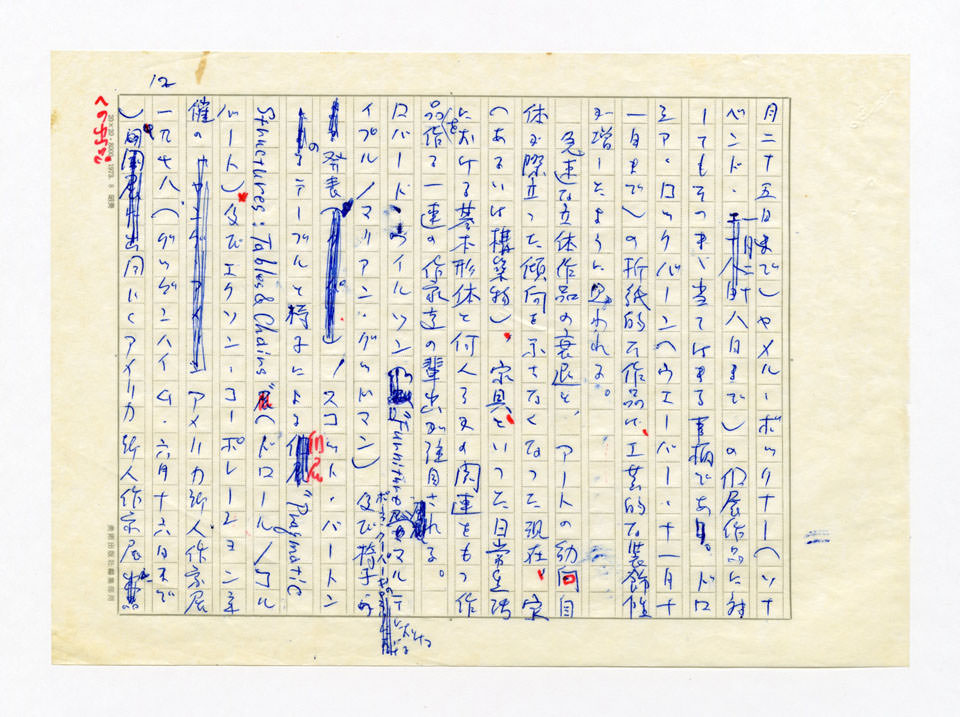 12
月二十五日まで)やメル・ボックナー(ソナ
ベンド・一月二十八日まで)の個展作品に対
してもそのまゝ当てはまる事柄である。ドロ
シア・ロックバーン(ウェーバー・十一月十
一日まで)の折紙的な作品は、工芸的な装飾性
が増したように思われる。
急速な立体作品の衰退と、アートの動向自
体が際立った傾向を示さなくなった現在、家
(あるいは構築物)、家具といった日常生活
における基本形体と何んらかの関連をもつ作
品を作る一連の作家達の輩出が注目される。
ロバート・ウイルソン "Furniture" マルテ
ィプル/マリアン・グッドマン)及び椅子
の発表 /スコット・バートン
のテーブルと椅子による個展 "Pragmatic
Structures: Tables & Chairs" 展(ドロール/ロバ
ート)及びエクソン・コーポレーション主
催の アメリカ新人作家展
一九七八(グッゲンハイム・六月十六日まで
) 同じくアメリカ新人作家展
20×20 1973. 8
美術出版社編集部用